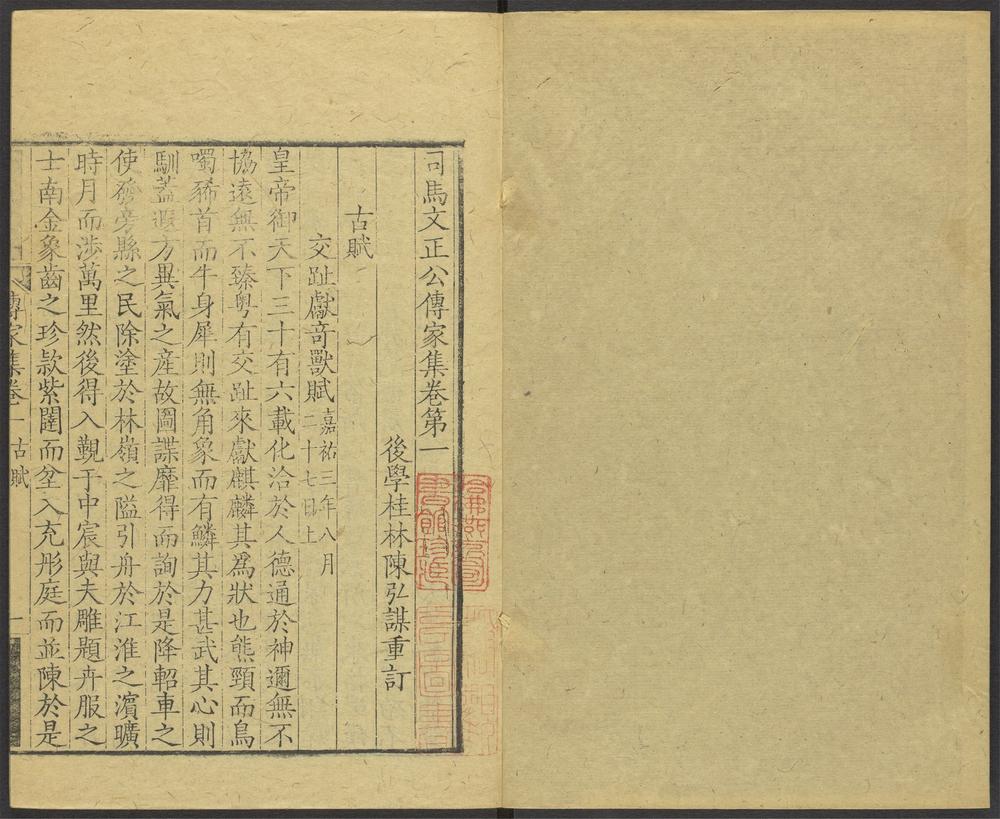 司馬文正公傳家集卷第一
後學桂林陳弘謀重訂
古賦
交趾獻奇獸賦嘉祐三年八月
二十七日上
皇帝御天下三十有六載化洽於人德通於神邇無不
協遠無不臻粤有交趾來獻麒麟其為狀也熊頸而鳥
噣豨首而牛身犀則無角象而有鱗其力甚武其心則
馴蓋遐方異氣之産故圖諜靡得而詢於是降軺車之
使發旁縣之民除塗於林嶺之隘引舟於江淮之濱曠
時月而涉萬里然後得入覲于中宸與夫雕題卉服之
士南金象齒之珍款紫闥而坌入充彤庭而並陳於是
傳家集卷一 古賦 一